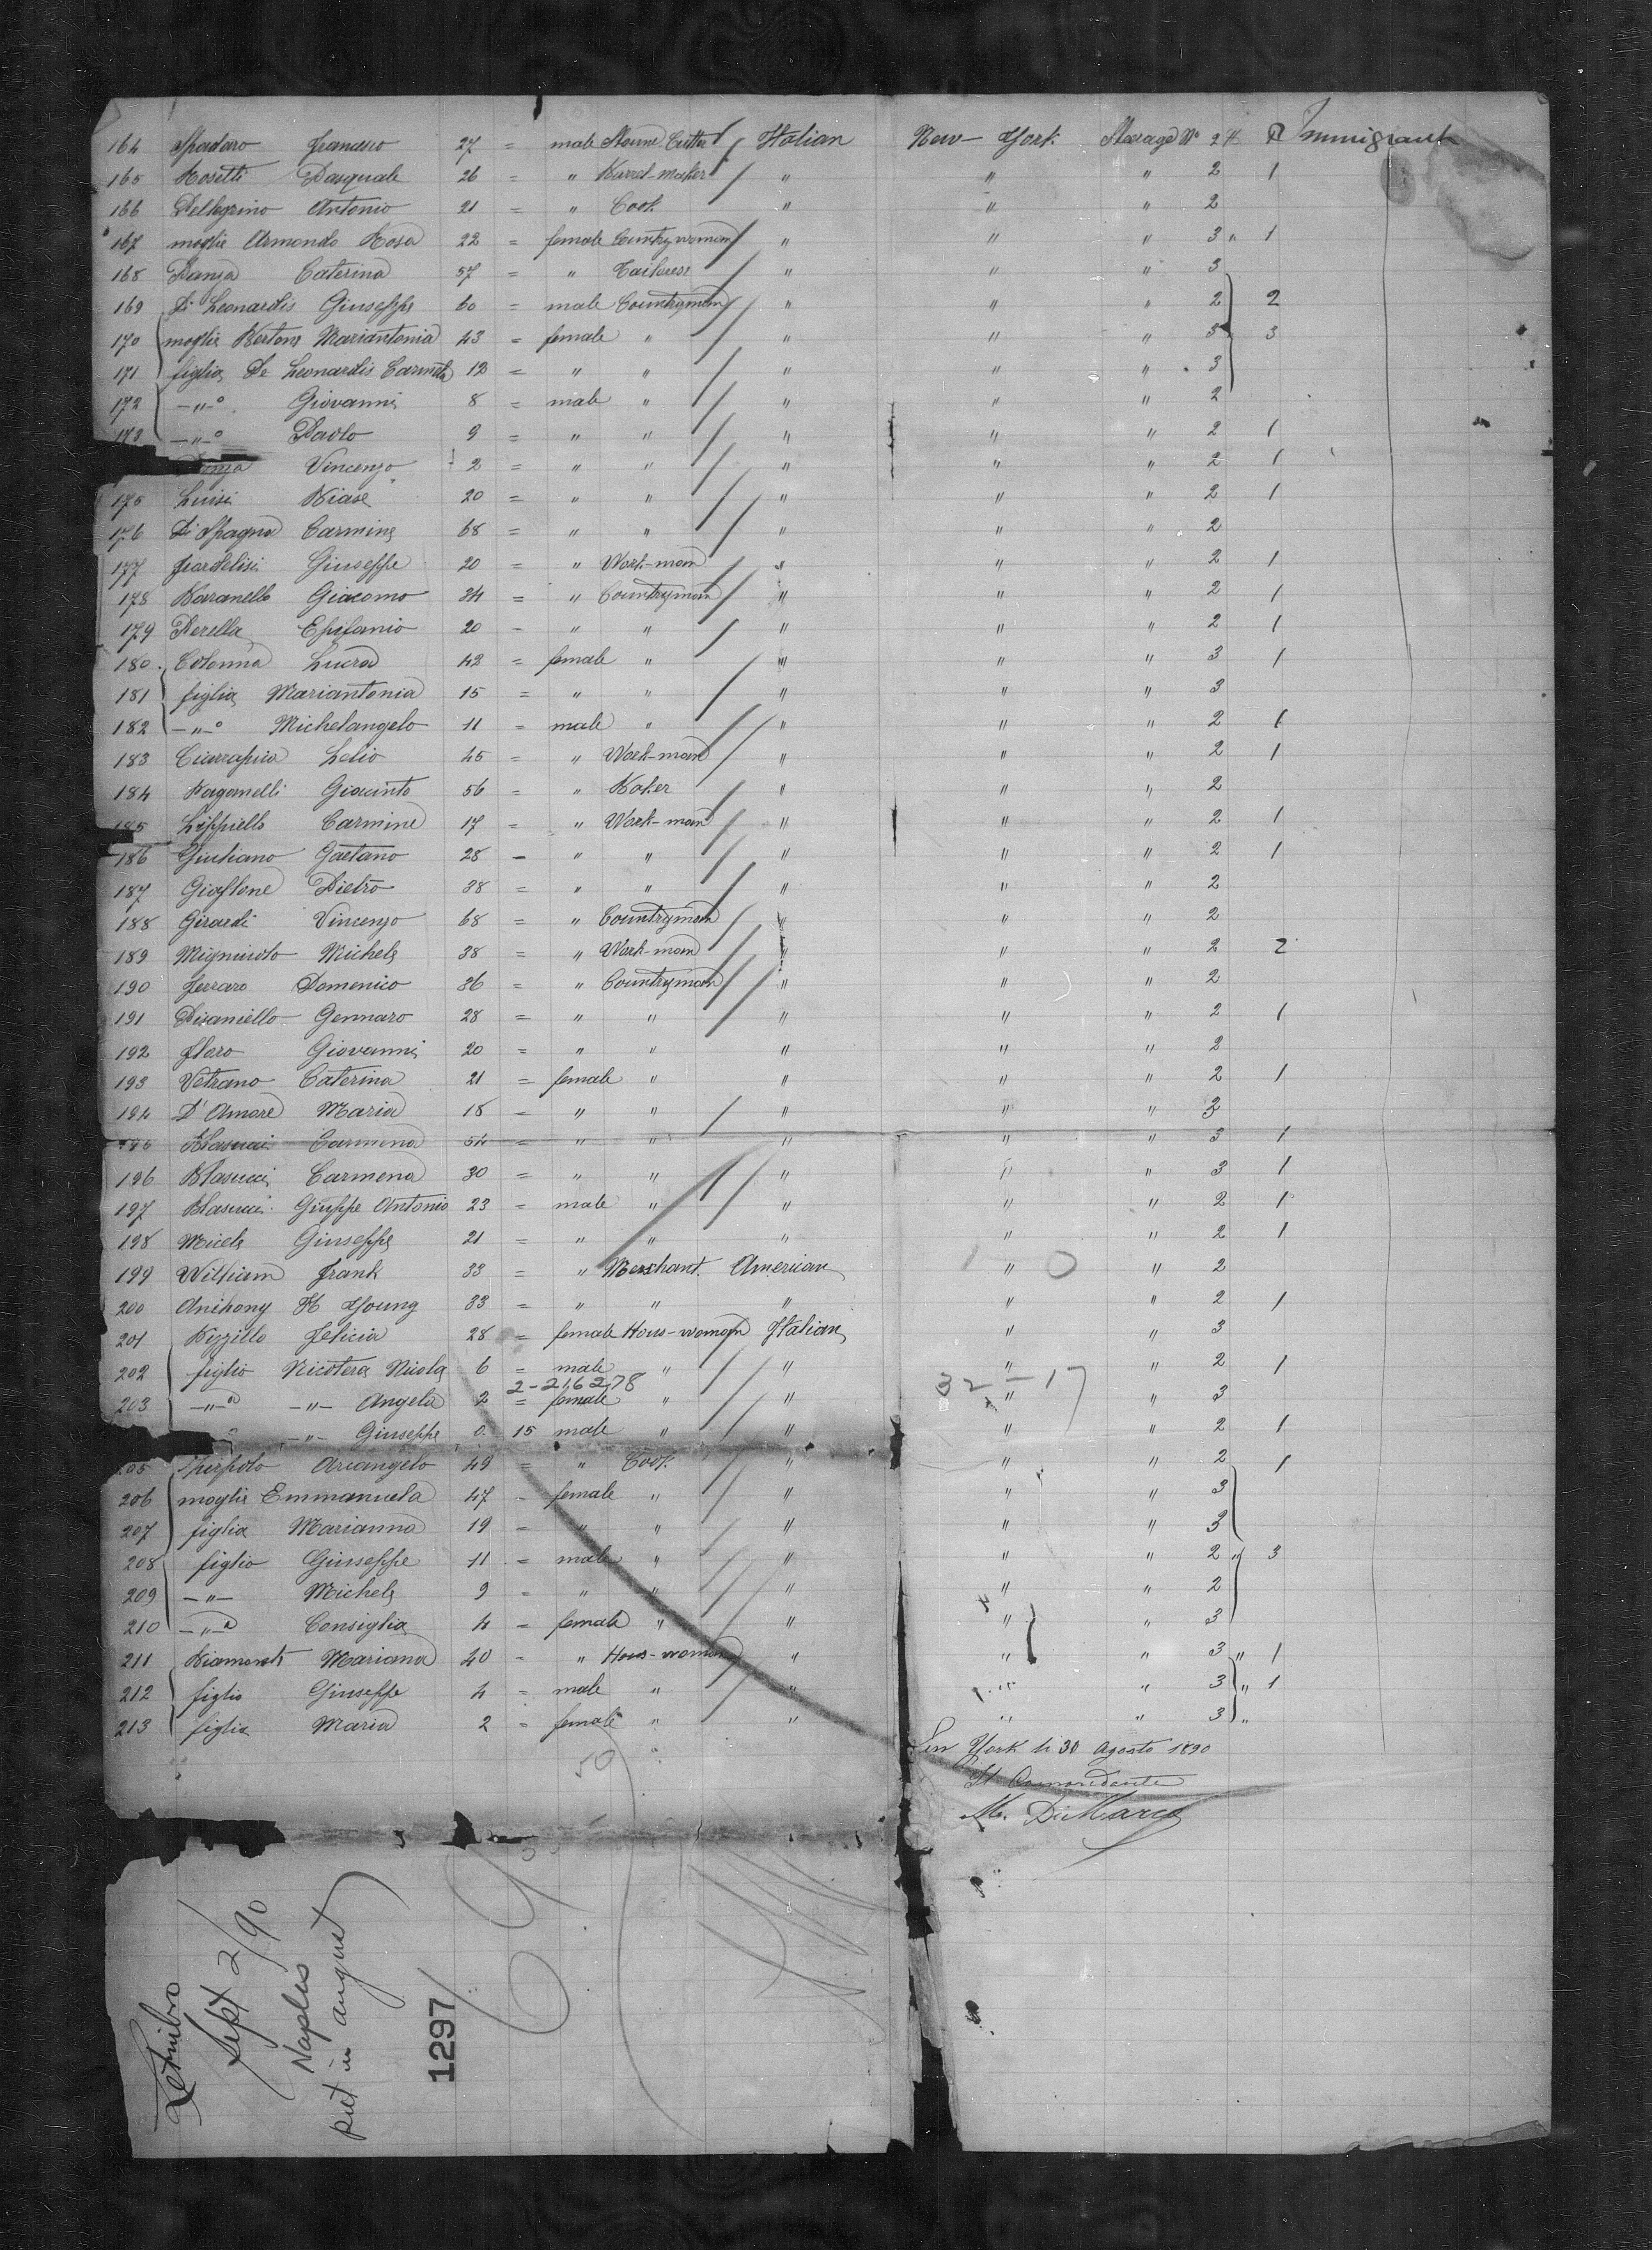 164 Spadaro Francesco 27 = male Stone Cutter Italian New-York Steerage No 2 2 Immigrant
165 Rosetti Pasquale 26 = " Barrel-maker " " " 2 1
166 Pellegrino Antonio 21 = " Cook " " " 2
167 moglie Armondo Rosa 22 = female Countrywoman " " " 3 " 1
168 Panza Caterina 57 = " Tailoress " " " 3
169 Di Leonardis Giuseppe 60 = male Countryman " " " 2 2
170 moglie Bertone Mariantonia 43 = female " " " " 3 3
171 figlia De Leonardis Carmela 12 = " " " " " 3
172 -"-o Giovanni 8 = male " " " " 2
173 -"-o Paolo 9 = " " " " " 2 1
Panza Vincenzo 2 = " " " " " 2 1
175 Luisi Biase 20 = " " " " " 2 1
176 Di Spagna Carmine 68 = " " " " " 2
177 Fiordelisi Giuseppe 20 = " Work-man " " " 2 1
178 Baranello Giacomo 34 = " Countryman " " " 2 1
179 Perella Epifanio 20 = " " " " " 2 1
180 Colonna Lucia 42 = female " " " " 3 1
181 figlia Mariantonia 15 = " " " " " 3
182 -"-o Michelangelo 11 = male " " " " 2 1
183 Ciarrapica Lelio 45 = " Work-man " " " 2 1
184 Paganelli Giacinto 56 = " Baker " " " 2
185 Lippiello Carmine 17 = " Work-man " " " 2 1
186 Giuliano Gaetano 28 = " " " " " 2 1
187 Pietro 38 = " " " " " 2
188 Girardi Vincenzo 68 = " Countryman " " " 2
189 Michele 38 = " Work-man " " " 2 2
190 Ferraro Domenico 36 = " Countryman " " " 2
191 Pisaniello Gennaro 28 = " " " " " 2 1
192 Floro Giovanni 20 = " " " " " 2
193 Vetrano Caterina 21 = female " " " " 2 1
194 D'Amore Maria 18 = " " " " " 3
195 Blasucci Carmena 54 = " " " " " 3 1
196 Blasucci Carmena 30 = " " " " " 3 1
197 Blasucci Giuseppe Antonio 23 = male " " " " 2 1
198 Micele Giuseppe 21 = " " " " " 2 1
199 William Frank 33 = " Merchant American " 0 " 2
200 Anthony H Young 33 = " " " " " 2 1
201 Rizzillo Felicia 28 = female Hous-woman Italian " " 3
202 figlio Nicotera Nicola 6 = male " " " " 2 1
2-216278 32-17
203 -"-a -"- Angela 2 = female " " " " 3
-"- Giuseppe 0 15 male " " " " 2 1
205 Arcangelo 49 = " Cook " " " 2 1
206 moglie Emmanuela 47 = female " " " " 3
207 figlia Marianna 19 = " " " " " 3
208 figlio Giuseppe 11 = male " " " " 2 " 3
209 -"- Michele 9 = " " " " " 2
210 -"-a Consiglia 4 = female " " " " 3
211 Biamonte Mariana 40 = " Hous-woman " " " 3 " 1
212 figlio Giuseppe 4 = male " " " " 3 " 1
213 figlia Maria 2 = female " " " " 3 "
New York li 30 Agosto 1890
Il Comandante
M. Di Marco
50
Letimbro
Sept 2/90
Naples
put in august
1297